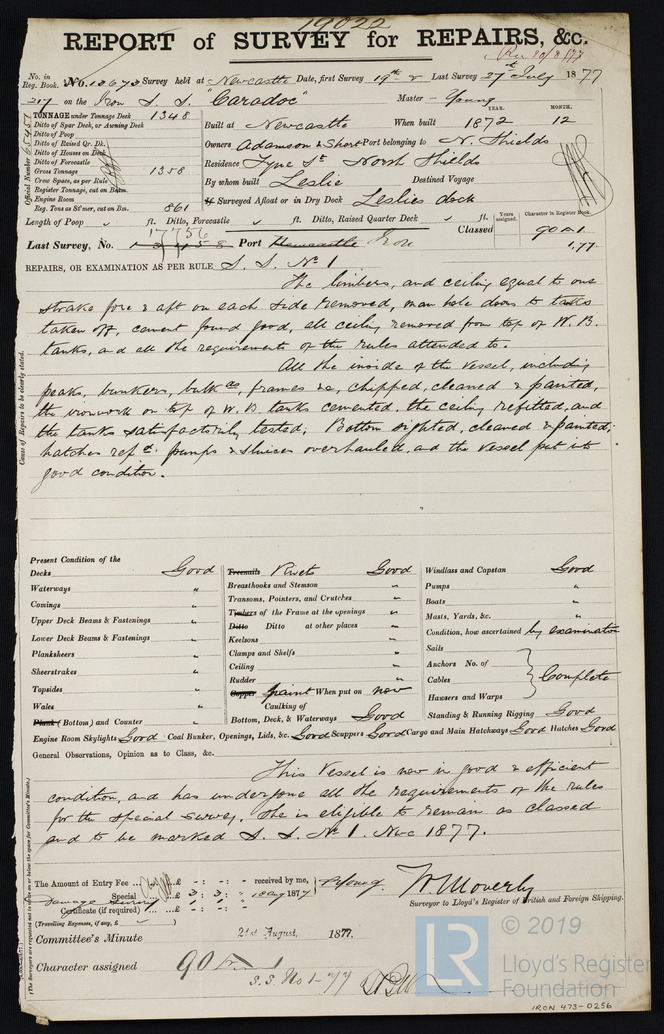 19022
REPORT of SURVEY for REPAIRS, &c.
No. in Reg. Book. No. 13673 Survey held at Newcastle Date, first Survey 19th & Last Survey 27th July 1877
217 on the Iron S. S. "Caradoc" Master – Young
TONNAGE under Tonnage Deck 1348
YEAR. MONTH.
Ditto of Spar Deck, or Awning Deck
Built at Newcastle When built 1872 12
Ditto of Poop
Ditto of Raised Qr. Dk.
Owners Adamson & Short Port belonging to N. Shields
Ditto of Houses on Deck
Ditto of Forecastle
Residence Tyne St North Shields
Gross Tonnage 1358
Cross Space, as per Rule
By whom built Leslie Destined Voyage
Register Tonnage, cut on Beam
Engine Room
If Surveyed Afloat or in Dry Dock Leslies dock
Reg. Tons as Str mer, cut on Bm. 861
Official Number
Length of Poop " ft. Ditto, Forecastle " ft. Ditto, Raised Quarter Deck " ft.
Years assigned. Character in Register Book.
Classed 90 A 1
1,77
17756
Last Survey, No. Port Newcastle Iron
REPAIRS, OR EXAMINATION AS PER RULE S. S. No 1
The limbers, and ceiling equal to one
strake fore & aft on each side removed, man hole doors to tanks
taken off, cement found good, all ceiling removed from top of W. B.
tanks, and all the requirements of the rules attended to.
All the inside of the vessel, including
peaks, bunkers, bulkds, frames &c, chipped, cleaned & painted,
the ironwork on top of W. B tanks cemented, the ceiling refitted, and
the tanks satisfactorily tested. Bottom sighted, cleaned & painted;
hatches repd. pumps & sluices overhauled, and the vessel put into
good condition.
Cause of Repairs to be clearly stated.
Present Condition of the
Decks Good
Waterways "
Comings "
Upper Deck Beams & Fastenings "
Lower Deck Beams & Fastenings "
Planksheers "
Sheerstrakes "
Topsides "
Wales "
Plank (Bottom) and Counter "
Treenails Rivets Good
Breasthooks and Stemson "
Transoms, Pointers, and Crutches "
Timbers of the Frame at the openings "
Ditto Ditto at other places "
Keelsons "
Clamps and Shelfs "
Ceiling "
Rudder "
Copper paint When put on now
Caulking of
Bottom, Deck, & Waterways Good
Windlass and Capstan Good
Pumps "
Boats "
Masts, Yards, &c. "
Condition, how ascertained by examination
Sails
Anchors No. of
Cables Complete
Hawsers and Warps
Standing & Running Rigging Good
Engine Room Skylights Good Coal Bunker, Openings, Lids, &c. Good Scuppers Good Cargo and Main Hatchways Good Hatches Good
General Observations, Opinion as to Class, &c.
This Vessel is now in good & efficient
condition, and has undergone all the requirements of the rules
for the special survey. She is eligible to remain as classed
and to be marked S. S. No 1. Nwc 1877.
The Amount of Entry Fee ... £ - : - : - received by me,
Special ... £ 3 : 3 : " 18 Aug 1877 P Young.
Damage Survey £ " : " : "
Certificate (if required) ... £ - : - : -
(Travelling Expenses, if any, £ )
W. Moverly
Surveyor to Lloyd's Register of British and Foreign Shipping.
Committee's Minute 21st August, 1877.
Character assigned 90 A 1
S. S. No 1-77
© 2019
LR
Lloyd's Register
Foundation
IRON 473-0256